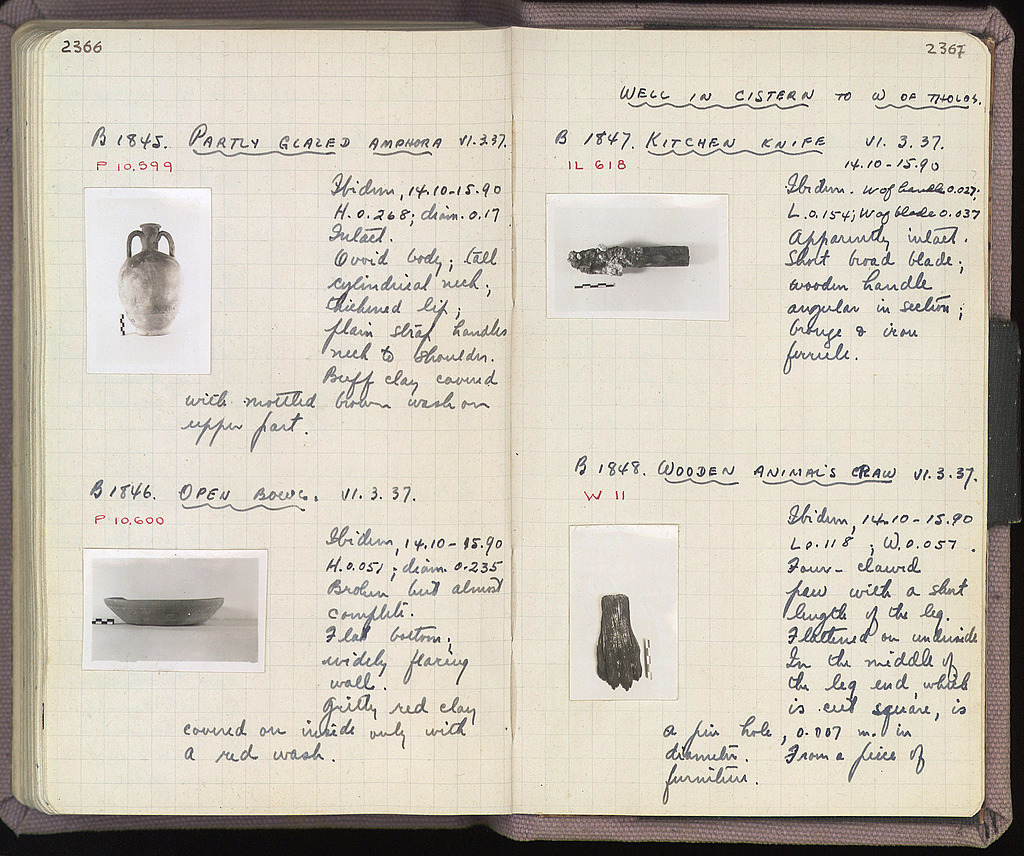 2366
B 1845. PARTLY GLAZED AMPHORA VI.3.37.
P 10,599
Ibidem, 14.10-15.90
H. 0.268; diam. 0.17
Intact.
Ovoid body; tall
cylindrical neck;
thickened lip;
plain strap handles
neck to shoulder.
Buff clay covered
with mottled brown wash on
upper part.
B 1846. OPEN BOWL. VI.3.37.
P 10,600
Ibidem, 14.10-15.90
H. 0.051; diam. 0.235
Broken but almost
complete.
Flat bottom;
widely flaring
wall.
Gritty red clay
covered on inside only with
a red wash.
2367
WELL IN CISTERN TO W OF THOLOS.
B 1847. KITCHEN KNIFE VI.3.37.
IL 618
14.10-15.90
Ibidem. W of handle 0.027;
L. 0.154; W of blade 0.037
Apparently intact.
Short broad blade;
wooden handle
angular in section;
bronze & iron
ferrule.
B 1848. WOODEN ANIMAL'S CRAW VI.3.37.
W 11
Ibidem, 14.10-15.90
L 0.118 ; W. 0.057.
Four-clawed
paw with a short
length of the leg.
Flattened on underside
In the middle of
the leg end, which
is cut square, is
a pin hole, 0.007 m. in
diameter. From a piece of
furniture.